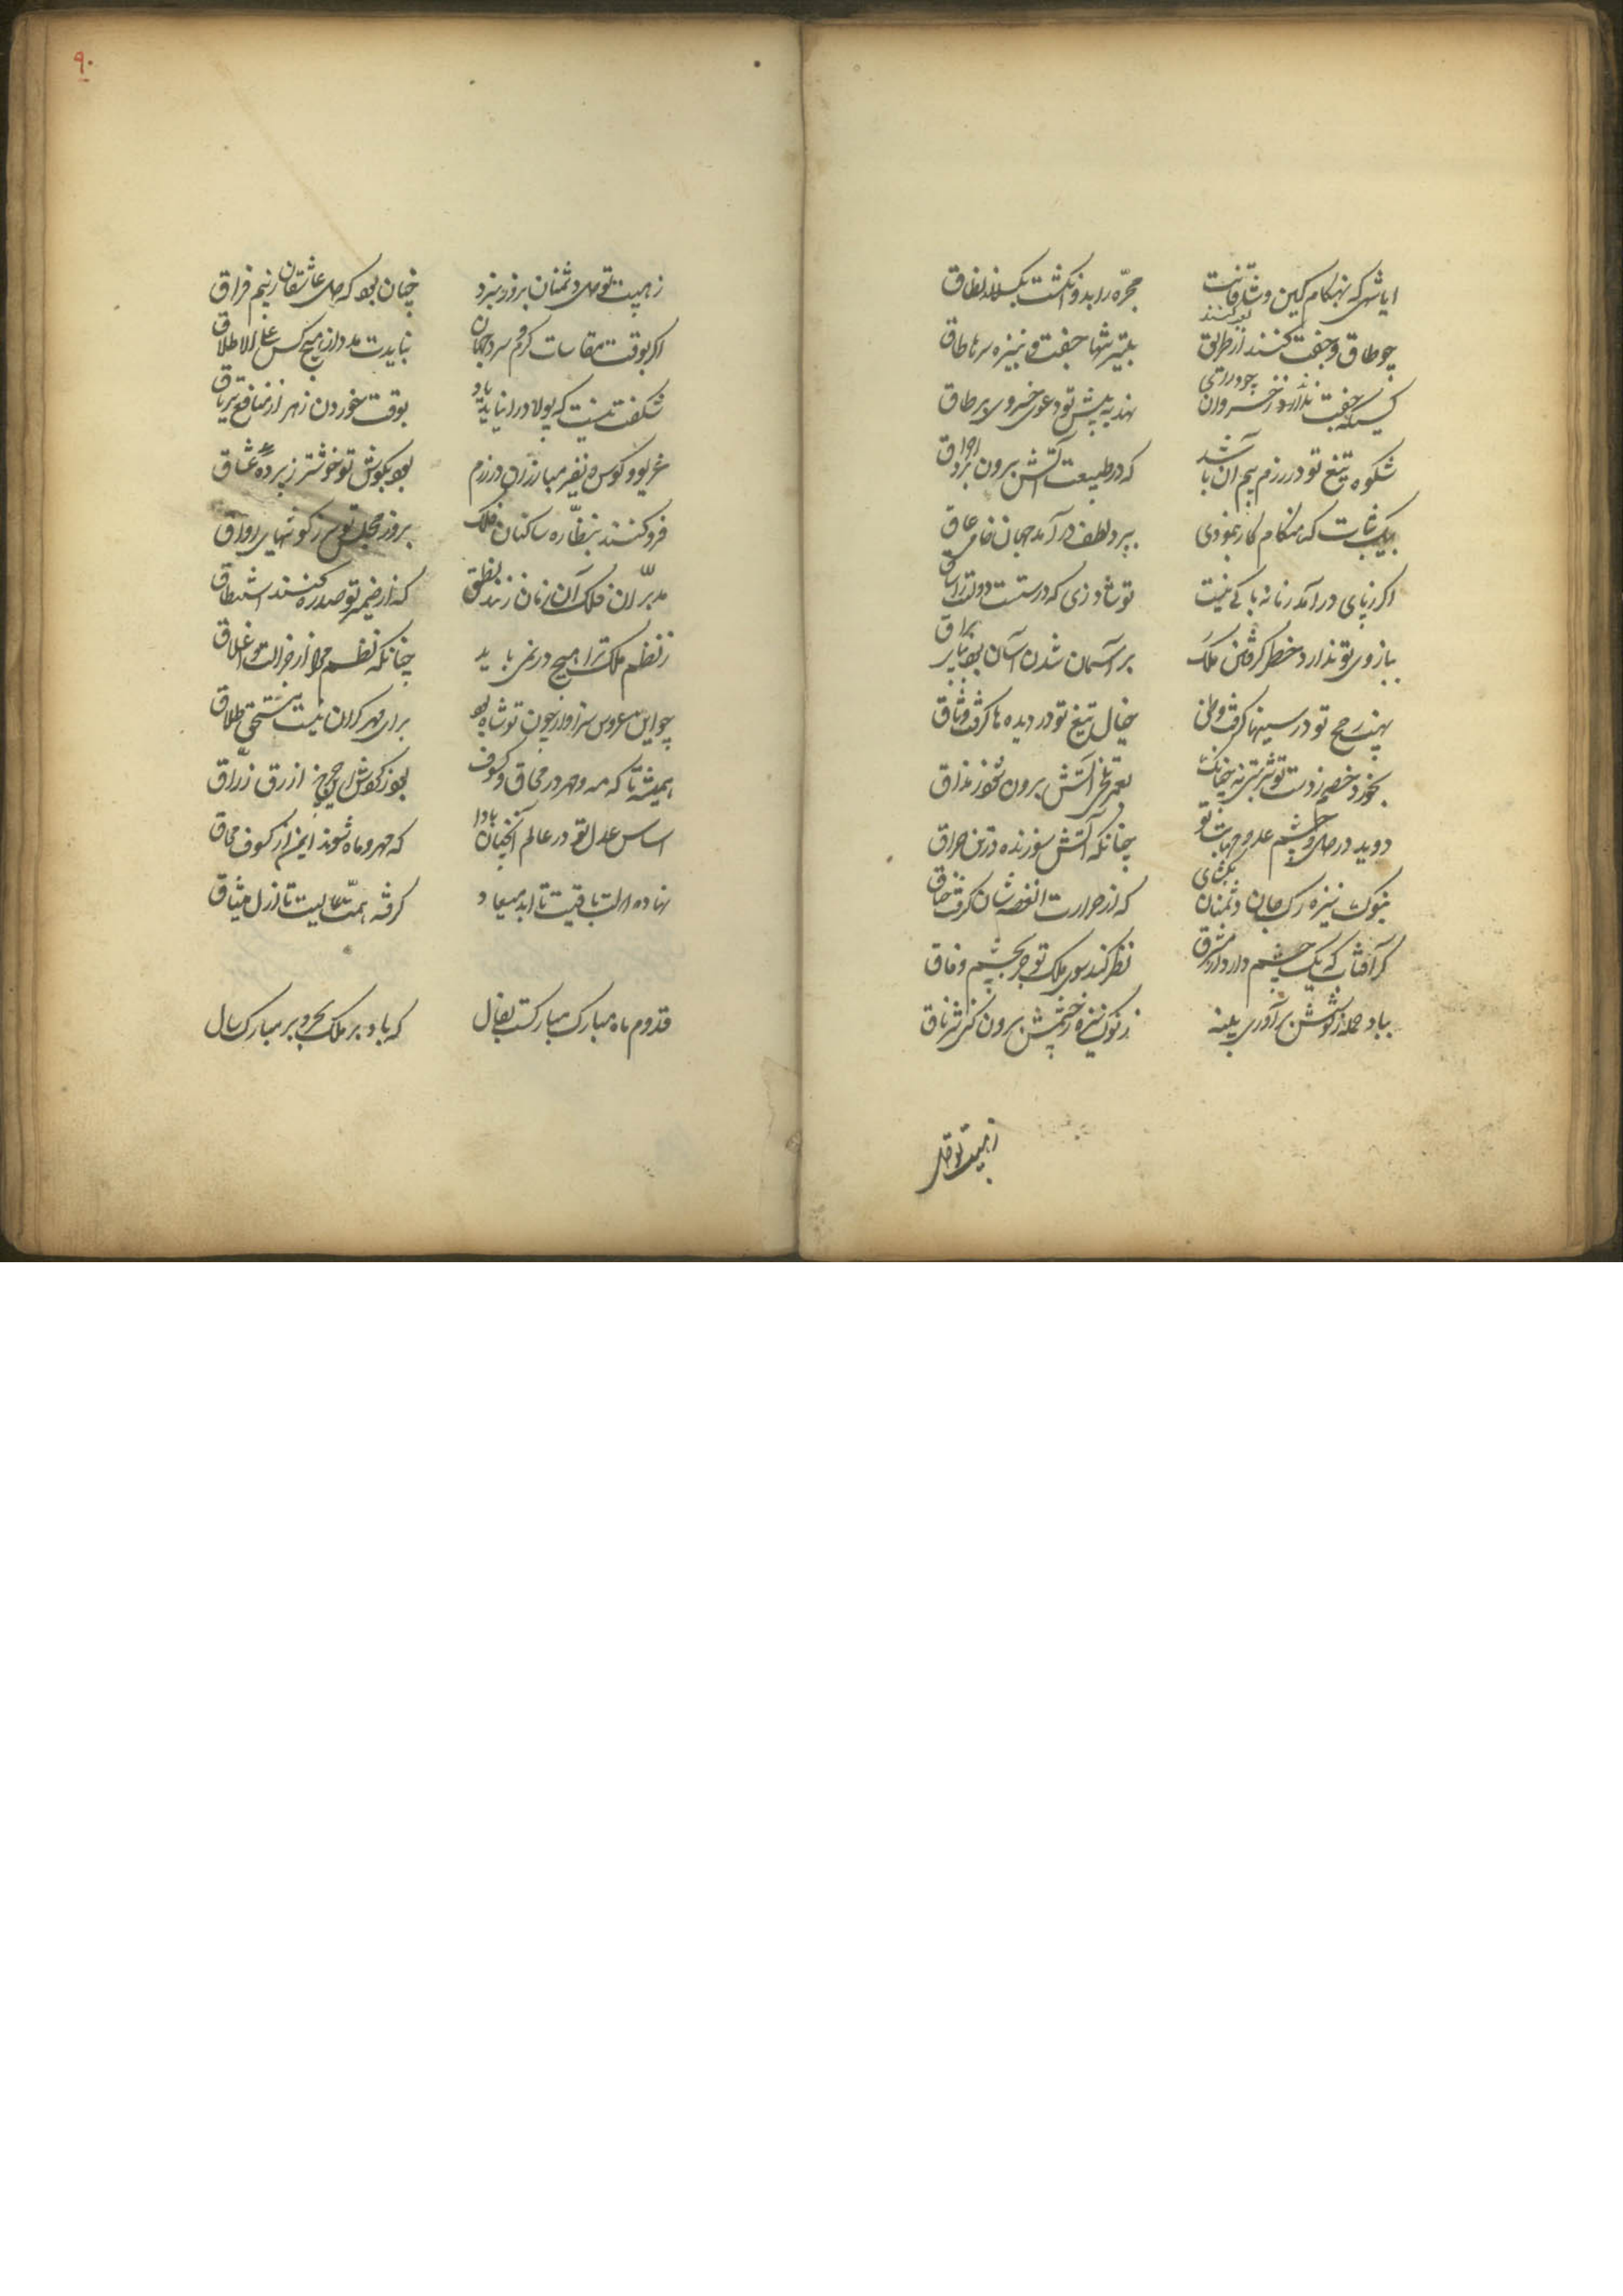 ایا شهی که بهنگام کین و شاقانت مجره را بدو انگشت بکسلاند نطاق
چو طاق و جفت کنند از طریق بتیر شها جفت و بنیزه سرها طاق
کسیکه جفت ندارد ز خسروان نهد به پیش تو دعوی خسروی بر طاق
شکوه تیغ تو در رزم بیم آن باشد که در طبیعت آتش برون برد احراق
بیک ثبات که هنگام کار بنمودی ببرد لطف درآمد جهان
اگر ز پای درآمد زمانه باکی نیست تو شاد زی که درستست دولت را ساق
ببازوی تو ندارد خطر گرفتن ملک بر آسمان شدن آسان بود بپای براق
نهیب رمح تو در سینها گرفت وطن خیال تیغ تو در دیده ها گرفت وثاق
بخورد خصم ز دست تو شربتی نه چنانک بعمر تلخی آتش برون شود ز مذاق
دوید در دل و چشم عدو مهابت تو چنانکه آتش سوزنده در تن حراق
بنوک نیزه رک جان دشمنان بکشای که از حرارت آن غصه شان گرفت خناق
گر آفتاب که یک چشم دارد از مشرق نظر کند سوی ملک تو جز بچشم وفاق
بباد حمله ز گوشش برآوری پنبه ز نوک نیزه ز چشمش برون کنی شرناق
ز هیبت تو دل
۹۰
ز هیبت تو دل دشمنان بروز نبرد چنان بود که دل عاشقان ز بیم فراق
اگر بوقت مقاسات گرم و سرد جهان نبایدت مدد از هیچ کس علی الاطلاق
شگفت نیست که پولاد را نباید یاد بوقت خوردن زهر از منافع تریاق
غریو و کوس و نفیر مبارزان در رزم بود بگوش تو خوشتر ز پرده عشاق
فرو کنند بنظاره ساکنان فلک بروز مجلس تو سر ز گوشهای رواق
مدبران فلک آن زمان زنند نطق که از ضمیر تو صد ره کنند استنطاق
ز نظم ملک ترا هیچ در نمی باید چنانکه نظم مرا از غزالت و اغلاق
چو این عروس سزاوار چون تو شاه بود برای مهر گران نیست مستحق طلاق
همیشه تا که مه و مهر در محاق و کسوف بود ز گردش این چرخ ازرق زراق
اساس عدل تو در عالم آنچنان بادا که مهر و ماه شوند ایمن از کسوف و محاق
نهاده دولت باقیت تا ابد میعاد گرفته همت عالیت تا ازل میثاق
قدوم ماه مبارک مبارکست بفال که باد بر ملک بحر و بر مبارک سال